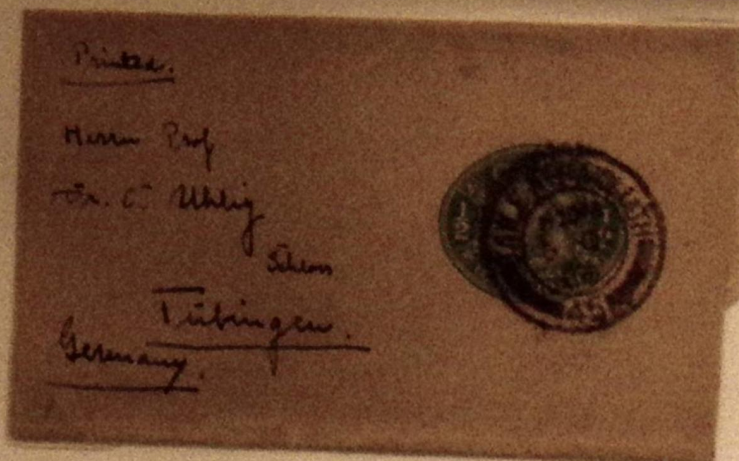 Printed.
Herrn Prof
Dr. C Uhlig
Schloss
Tübingen.
Germany.